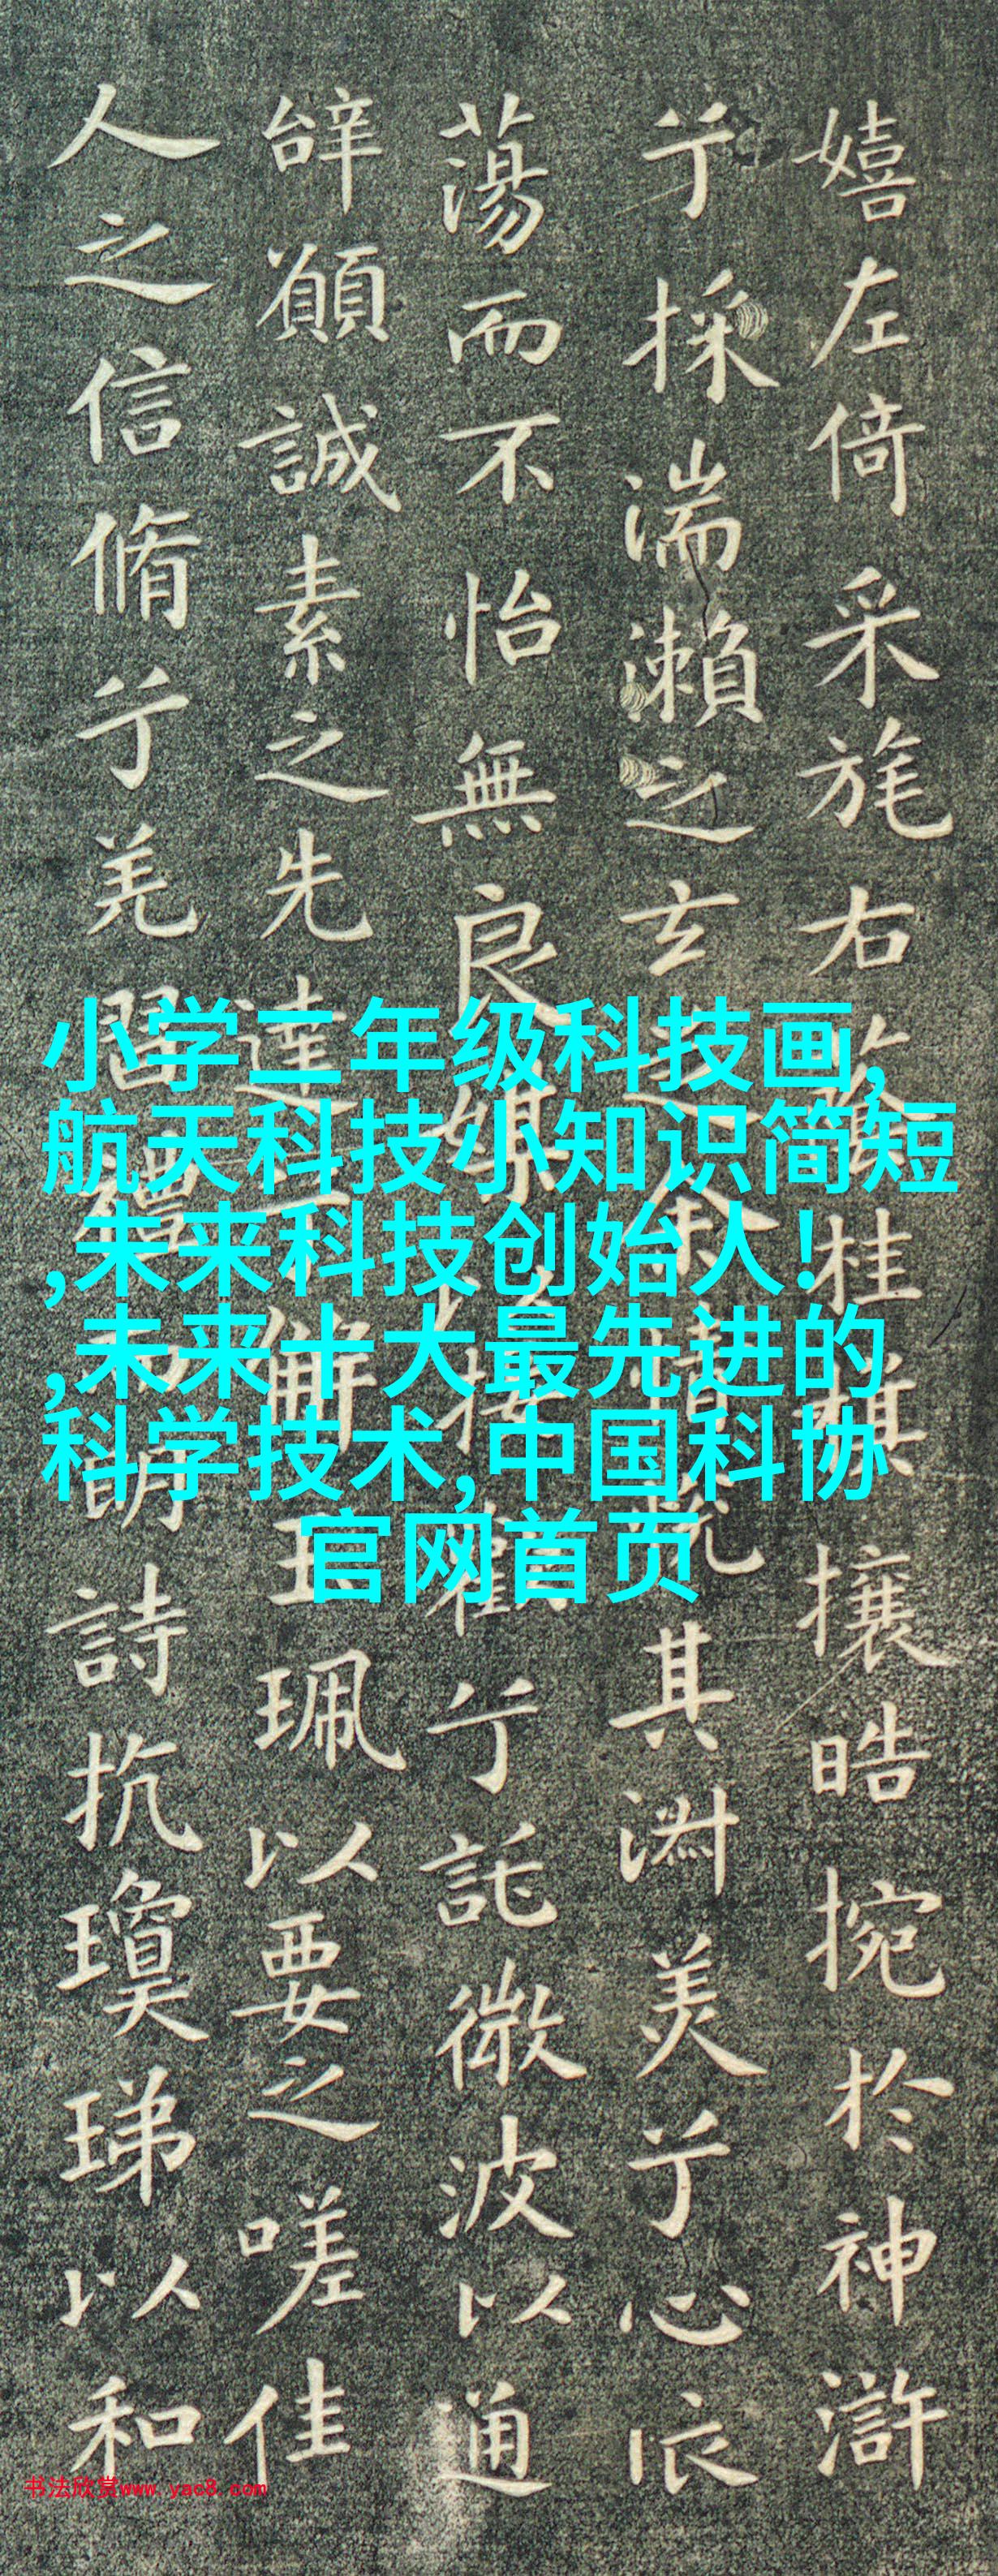 嬉左倚采旄右蔭桂旗攘皓捥於神滸
兮採湍瀬之玄芝余情悅其淵美兮心
蕩而不怡無良媒以接懽兮託微波以通
辝願誠素之先達兮解玉珮以要之嗟佳
人之信脩兮羌習禮而明詩抗瓊珶以和
小学二年级科技画,
航天科技小知识简短
,未来科技创始人!
,未来十大最先进的
科学技术,中国科协
官网首页
书法欣赏www.yac8.com